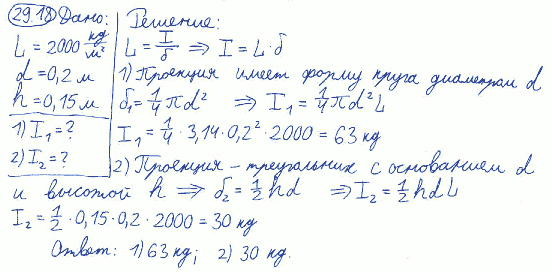 29.18 Дано:
L = 2000 кд/м²
d = 0,2 м
h = 0,15 м
1) I₁ = ?
2) I₂ = ?
Решение:
L = I/δ ⇒ I = L · δ
1) Проекция имеет форму круга диаметром d
δ₁ = 1/4 πd² ⇒ I₁ = 1/4 πd²L
I₁ = 1/4 · 3,14 · 0,2² · 2000 = 63 кд
2) Проекция – треугольник с основанием d
и высотой h ⇒ δ₂ = 1/2 hd ⇒ I₂ = 1/2 hdL
I₂ = 1/2 · 0,15 · 0,2 · 2000 = 30 кд
Ответ: 1) 63 кд; 2) 30 кд.